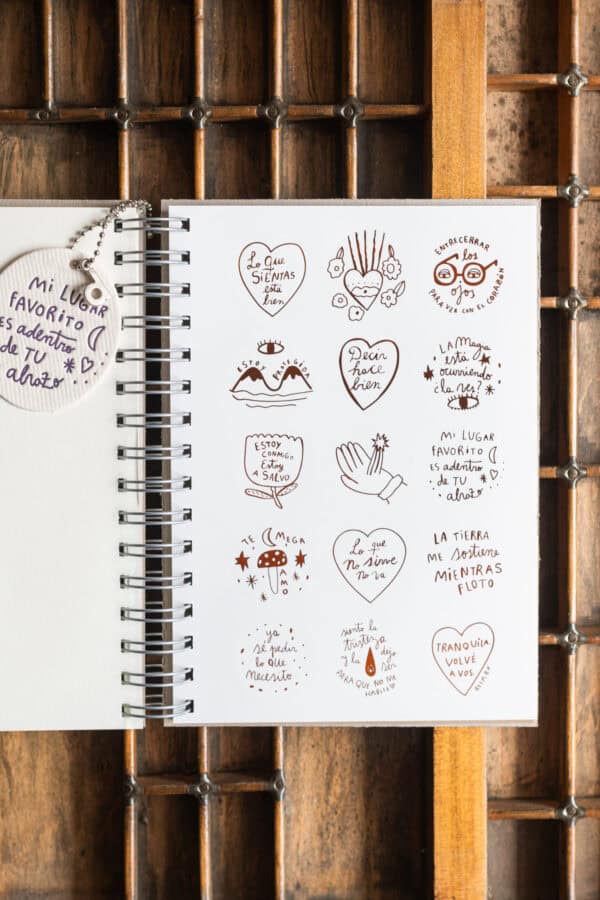 MI LUGAR
FAVORITO
ES adentro
de TU
abrazo
Lo Que
SiENTAS
está
bien
ENTRECERRAR
los
ojos
PARA VER CON EL CORAZÓN
ESTOY PROTEGIDA
Decir
hace
bien
LA Magia
está
ocurriendo
¿la ves?
ESTOY
CONMIGO
Estoy
A SALVO
MI LUGAR
FAVORITO
ES adentro
de TU
abrazo
TE MEGA
AMO
Lo que
No sirve
No va
LA TIERRA
ME sostiene
MIENTRAS
FLOTO
ya
sé pedir
lo que
necesito
siento la
tristeza
y la dejo
ser
PARA QUE NO ME
TRANQUILA,
VOLVÉ
A VOS